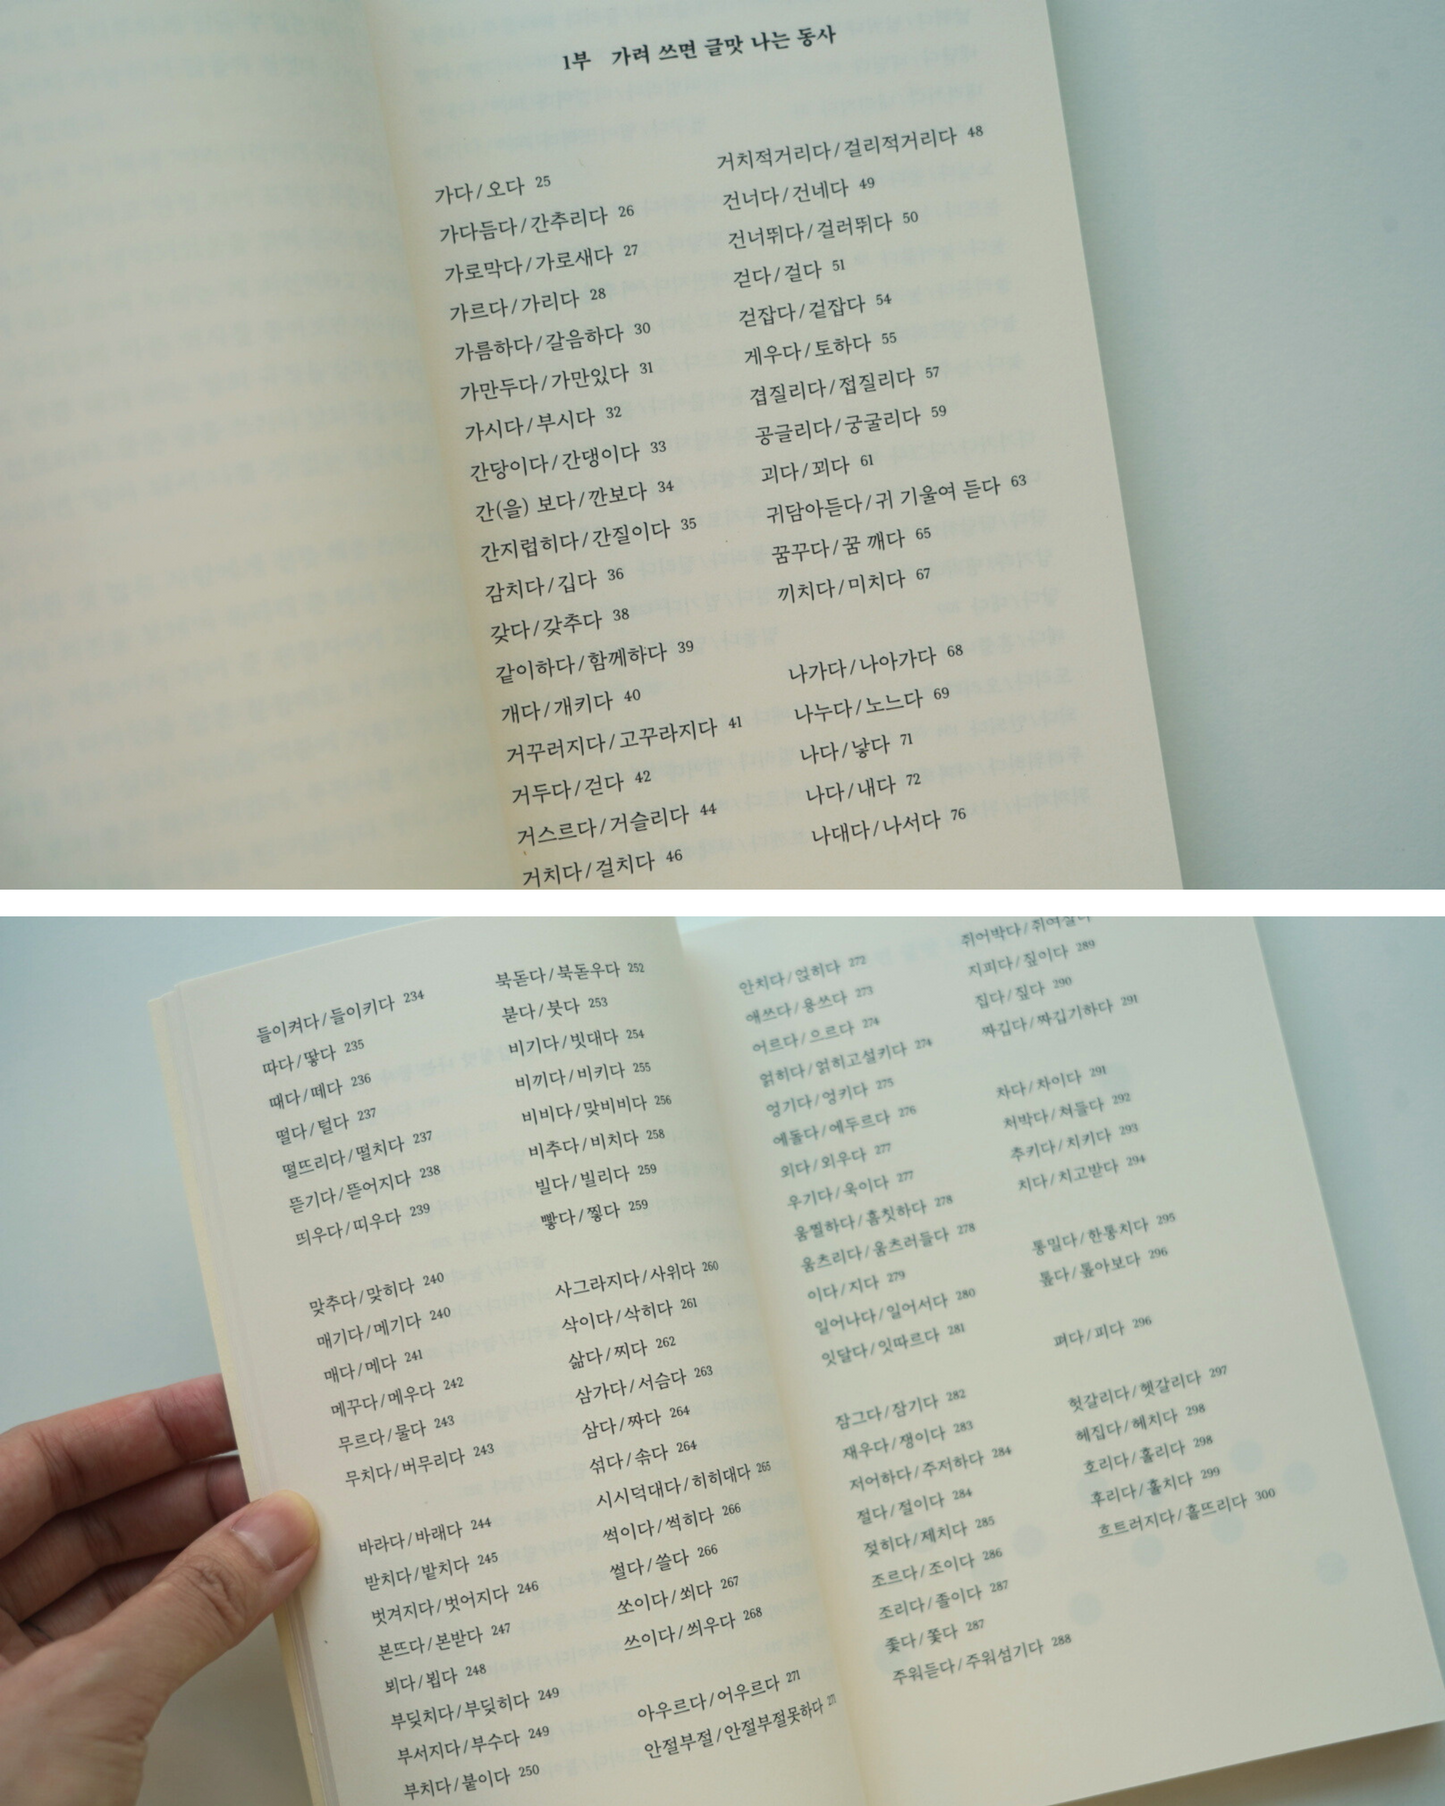 1부 가려 쓰면 글맛 나는 동사
가다/오다 25
가다듬다/간추리다 26
가로막다/가로새다 27
가르다/가리다 28
가름하다/갈음하다 30
가만두다/가만있다 31
가시다/부시다 32
간당이다/간댕이다 33
간(을) 보다/깐보다 34
간지럽히다/간질이다 35
감치다/깁다 36
갖다/갖추다 38
같이하다/함께하다 39
개다/개키다 40
거꾸러지다/고꾸라지다 41
거두다/걷다 42
거스르다/거슬리다 44
거치다/걸치다 46
거치적거리다/걸리적거리다 48
건너다/건네다 49
건너뛰다/걸러뛰다 50
걷다/걸다 51
걷잡다/겉잡다 54
게우다/토하다 55
겹질리다/접질리다 57
공글리다/궁굴리다 59
괴다/꾀다 61
귀담아듣다/귀 기울여 듣다 63
꿈꾸다/꿈 깨다 65
끼치다/미치다 67
나가다/나아가다 68
나누다/노느다 69
나다/낳다 71
나다/내다 72
나대다/나서다 76
들이켜다/들이키다 234
따다/땋다 235
때다/떼다 236
떨다/털다 237
떨뜨리다/떨치다 237
뜯기다/뜯어지다 238
띄우다/띠우다 239
맞추다/맞히다 240
매기다/메기다 240
매다/메다 241
메꾸다/메우다 242
무르다/물다 243
무치다/버무리다 243
바라다/바래다 244
받치다/밭치다 245
벗겨지다/벗어지다 246
본뜨다/본받다 247
뵈다/뵙다 248
부딪치다/부딪히다 249
부서지다/부수다 249
부치다/붙이다 250
북돋다/북돋우다 252
붇다/붓다 253
비기다/빗대다 254
비끼다/비키다 255
비비다/맞비비다 256
비추다/비치다 258
빌다/빌리다 259
빻다/찧다 259
사그라지다/사위다 260
삭이다/삭히다 261
삶다/찌다 262
삼가다/서슴다 263
삼다/짜다 264
섞다/솎다 264
시시덕대다/히히대다 265
썩이다/썩히다 266
썰다/쓸다 266
쏘이다/쐬다 267
쓰이다/씌우다 268
아우르다/어우르다 271
안절부절/안절부절못하다 271
안치다/얹히다 272
애쓰다/용쓰다 273
어르다/으르다 274
얽히다/얽히고설키다 274
엉기다/엉키다 275
에돌다/에두르다 276
외다/외우다 277
우기다/욱이다 277
움찔하다/흠칫하다 278
움츠리다/움츠러들다 278
이다/지다 279
일어나다/일어서다 280
잇달다/잇따르다 281
잠그다/잠기다 282
재우다/쟁이다 283
저어하다/주저하다 284
절다/절이다 284
젖히다/제치다 285
조르다/조이다 286
조리다/졸이다 287
좇다/쫓다 287
주워듣다/주워섬기다 288
쥐어박다/쥐여살다
지피다/짚이다 289
집다/짚다 290
짜깁다/짜깁기하다 291
차다/차이다 291
처박다/쳐들다 292
추키다/치키다 293
치다/치고받다 294
통밀다/한통치다 295
톺다/톺아보다 296
펴다/피다 296
헛갈리다/헷갈리다 297
헤집다/헤치다 298
호리다/홀리다 298
후리다/훌치다 299
흐트러지다/흩뜨리다 300